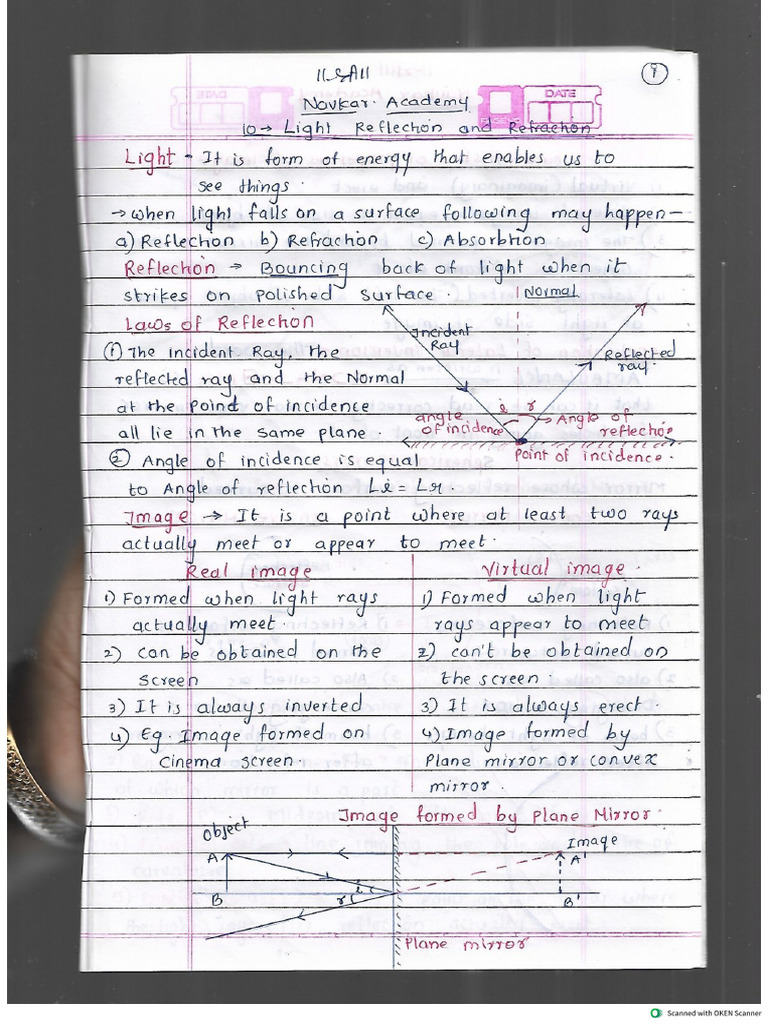 Navkar Academy
DATE
10 → Light Reflection and Refraction
Light - It is form of energy that enables us to
see things.
→ when light falls on a surface following may happen -
a) Reflection b) Refraction c) Absorbtion
Reflection → Bouncing back of light when it
strikes on polished surface.
Normal
Laws of Reflection
Incident
Ray
① The incident Ray, the
Reflected
ray
reflected ray and the Normal
at the point of incidence
i r
angle
of incidence
Angle of
reflection
all lie in the same plane.
② Angle of incidence is equal
Point of incidence.
to Angle of reflection Li = Lr.
Image → It is a point where at least two rays
actually meet or appear to meet.
Real image
1) Formed when light rays
actually meet.
2) can be obtained on the
screen
3) It is always inverted
4) Eg. Image formed on
Cinema screen.
Virtual image.
1) Formed when light
rays appear to meet
2) can't be obtained on
the screen.
3) It is always erect.
4) Image formed by
Plane mirror or convex
mirror.
Image formed by Plane Mirror.
Object
Image
A
A'
i
r
B
B'
Plane mirror
Scanned with OKEN Scanner